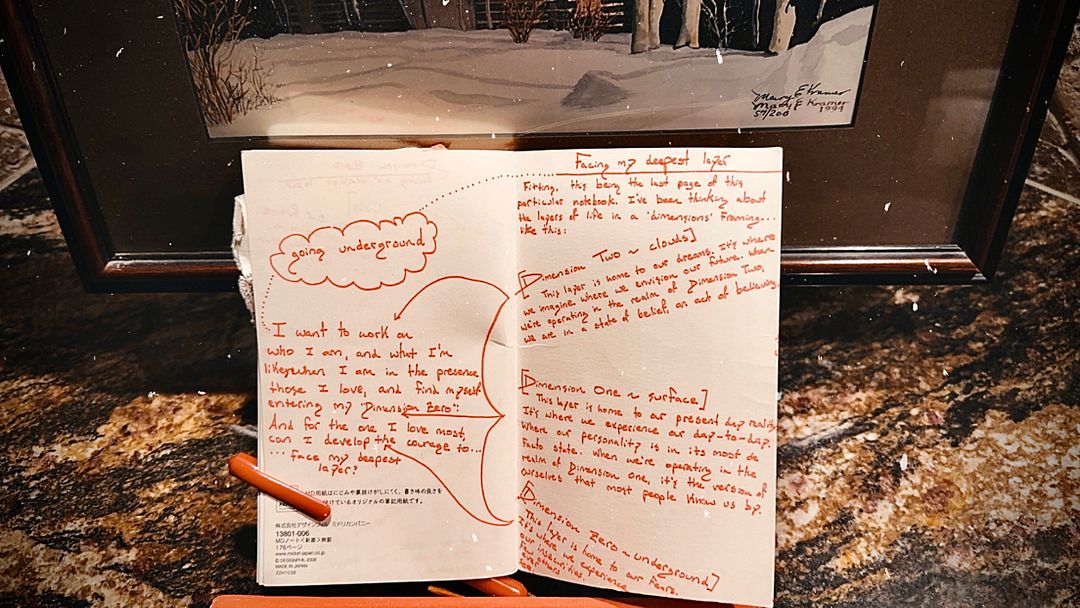 Mary E Kramer
Mary E Kramer
57/200 1994
going underground
I want to work on
who I am, and what I'm
like when I am in the presence
those I love, and find myself
entering my 'Dimension Zero':
And for the one I love most,
can I develop the courage to...
...face my deepest
layer?
MD用紙はにじみや裏抜けがしにくく、書き味の良さを
けているオリジナルの筆記用紙です。
株式会社デザインフィル ミドリカンパニー
13801-006
MDノート<新書>無罫
176ページ
www.midori-japan.co.jp
© DESIGNPHIL 2008
MADE IN JAPAN
Facing my deepest layer
Fitting, this being the last page of this
particular notebook. I've been thinking about
the layers of life in a 'dimensions' framing...
like this:
[Dimension Two ~ clouds]
This layer is home to our dreams. It's where
we imagine. Where we envision our future. When
we're operating in the realm of Dimension Two,
we are in a state of belief, an act of believing.
[Dimension One ~ surface]
This layer is home to our present day reality
It's where we experience our day-to-day.
Where our personality is in its most de
facto state. When we're operating in the
realm of Dimension One, it's the version of
ourselves that most people know us by.
[Dimension Zero ~ underground]
This layer is home to our fears.
It's where we experience
our insecurities.
Few others
see.